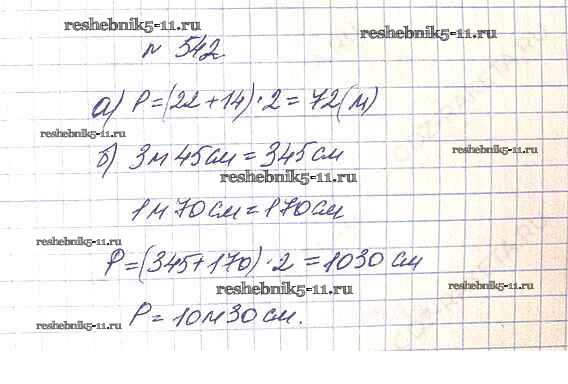 reshebnik5-11.ru
reshebnik5-11.ru
N 542.
а) P=(22+14)·2=72(м)
reshebnik5-11.ru
б) 3м 45см=345см
reshebnik5-11.ru
reshebnik5-11.ru
1м70см=170см
reshebnik5-11.ru
P=(345+170)·2=1030 см
reshebnik5-11.ru
P=10м30см.
reshebnik5-11.ru
reshebnik5-11.ru